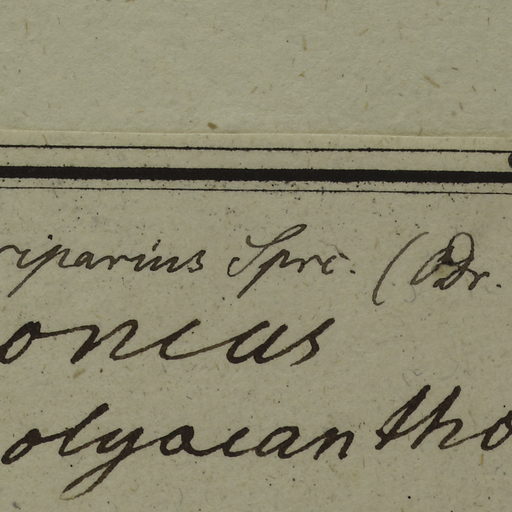 riparius Spre. (Dr.
onicus
olyacantho